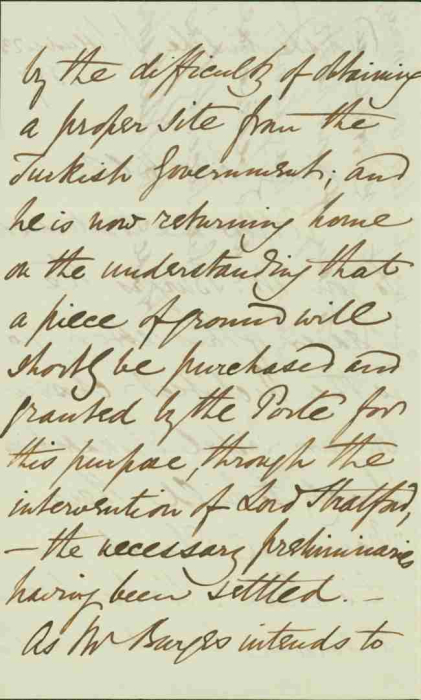 by the difficulty of obtaining
a proper site from the
Turkish Government; and
he is now returning home
on the understanding that
a piece of ground will
shortly be purchased and
granted by the Porte for
this purpose, through the
intervention of Lord Stratford,
– the necessary preliminaries
having been settled. –
As Mr Burges intends to